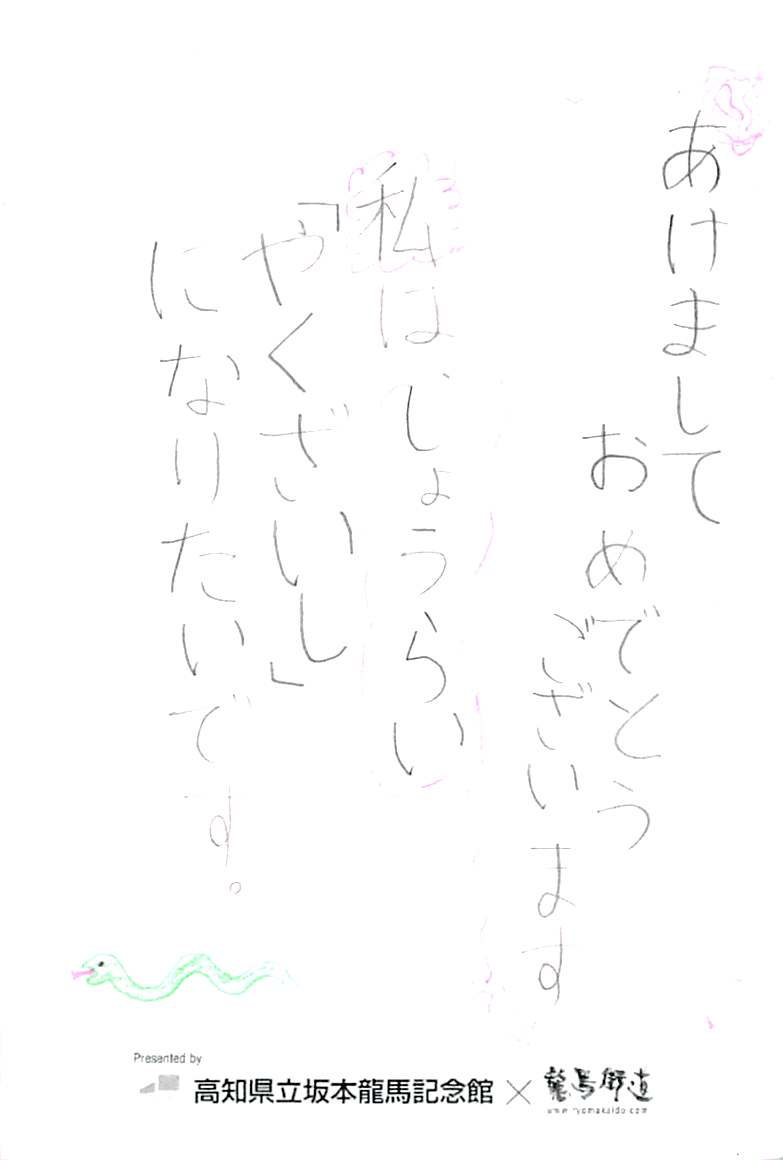 あけまして
おめでとう
ございます
私はじょうらい
「やくざいし」
になりたいです。
Presented by
高知県立坂本龍馬記念館×龍馬街道
www.ryomakaido.com